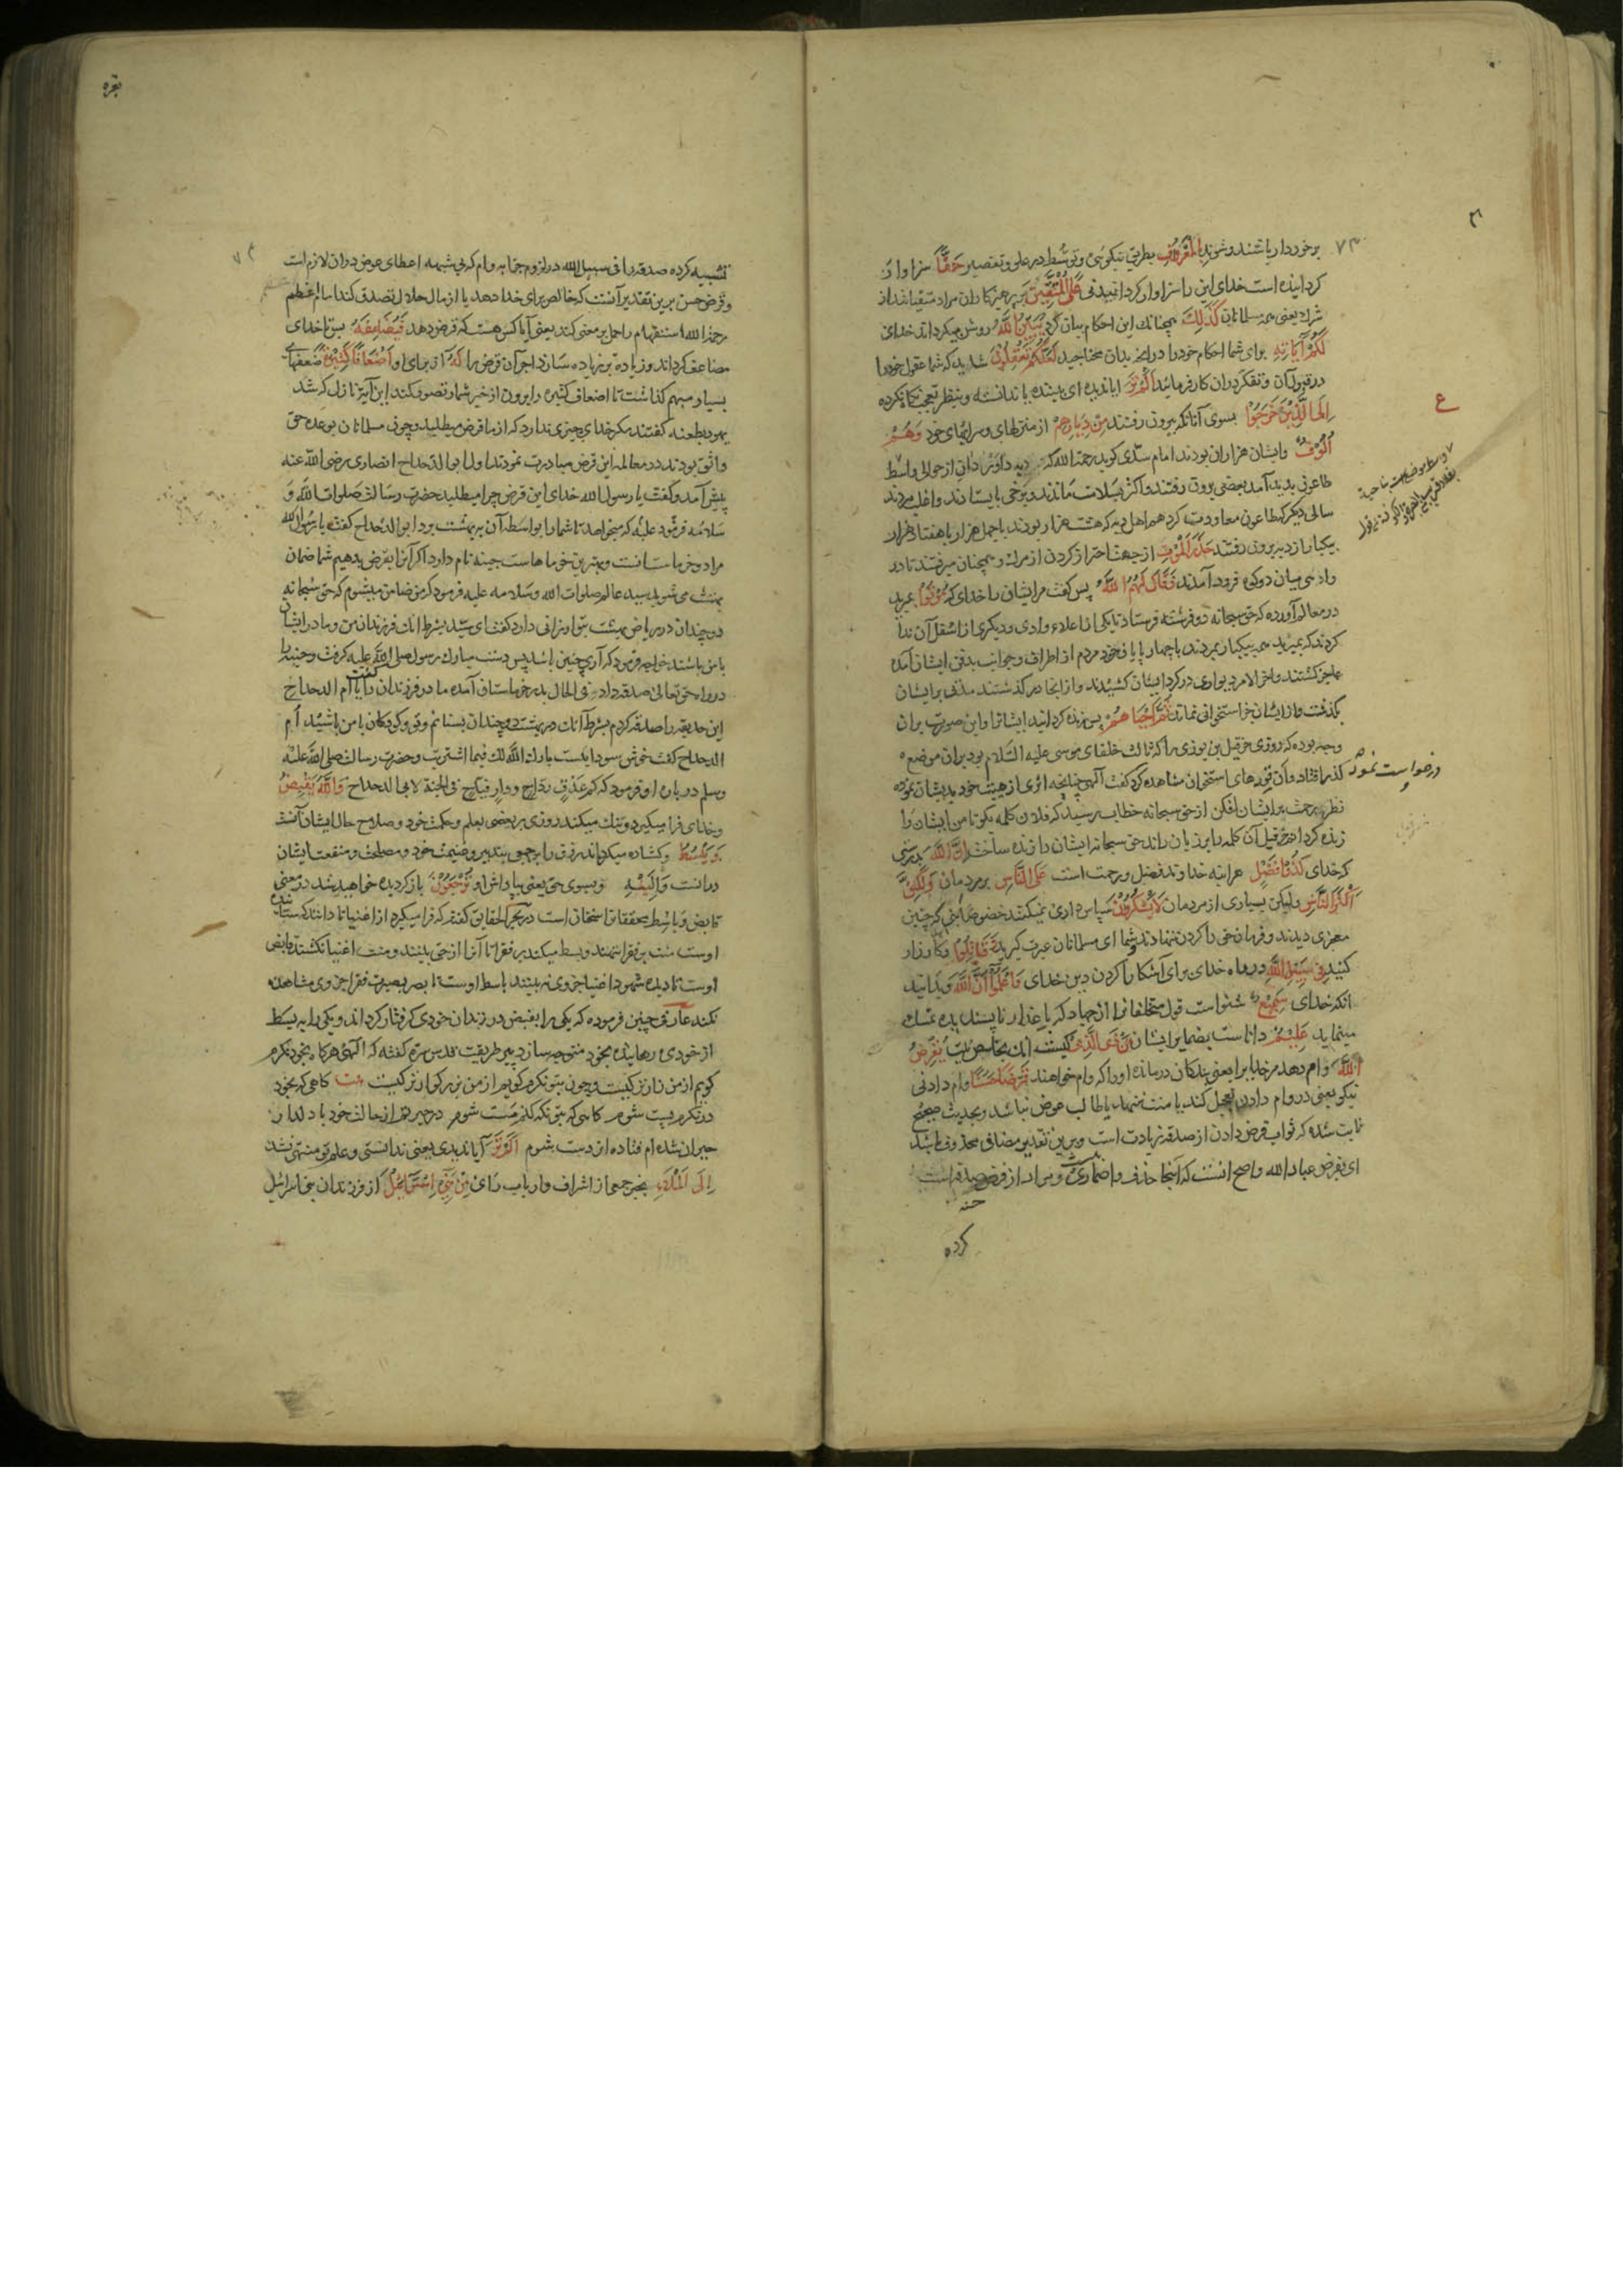 برخوردار باشند و شوند بالمعروف بطریق نیکوئی و توسط در علی و تقصیر حقا سزاوار
کردانیده است خدای این را سزاوار کردانیدنی علی المتقین بر پرهیزکاران مراد متقیانند از
شرک یعنی همه مسلمانان کذلک همچنانک این احکام بیان کرد یبین الله روشن میکرداند خدای
لکم آیاته برای شما احکام خود را در آنچه بدان محتاجید لعلکم تعقلون شاید که شما عقول خود را
در قبول آن و تفکر در آن کار فرمائید الم تر ایا ندیده ای بیننده یا ندانسته و بنظر تعجب نگاه نکرده
الی الذین خرجوا بسوی آنانکه بیرون رفتند من دیارهم از منزلهای و سراهای خود و هم
الوف و ایشان هزاران بودند امام سدی کوید رحمه الله که دیه داوردان از حوالی واسط
طاعونی پدید آمد بعضی برون رفتند و اکثر بسلامت ماندند و برخی بایستادند و اغلب مردند
سالی دیکر که طاعون معاودت کرد همه اهل دیه که هشت هزار بودند یا چهل هزار یا هفتاد هزار
بیکبار از دیه بیرون رفتند حذر الموت از جهت احتراز کردن از مرک و همچنان میرفتند تا در
وادی میان دو کوه فرود آمدند فقال لهم الله پس کفت مر ایشان را خدای که موتوا بمیرید
در معالم آورده که حق سبحانه دو فرشته فرستاد تا یکی از اعلاء وادی و دیکری از اسفل آن ندا
کردند که بمیرید همه بیکبار بمردند با چهارپایان خود مردم از اطراف و جوانب بدفن ایشان آمده
عاجز کشتند و آخر الامر دیواری در کرد ایشان کشیدند و از انجا درگذشتند مدتی بر ایشان
بکذشت و از ایشان بجز استخوانی نماند ثم احیاهم پس زنده کردانید ایشانرا و این صورت بران
وجه بوده که روزی حزقیل بن بوذی را که ثالث خلفای موسی علیه السلام بود بران موضع
کذر افتاد و آن توده های استخوان مشاهده کرد کفت الهی چنانچه اثری از هیبت خود بدیشان نموده
نظر رحمت بر ایشان افکن از حق سبحانه خطاب رسید که فلان کلمه بکو تا من ایشان را
زنده کردانم حزقیل آن کلمه را بر زبان راند حق سبحانه ایشان را زنده ساخت ان الله بدرستی
که خدای لذو فضل هر آینه خداوند فضل و رحمت است علی الناس بر مردمان و لکن
اکثر الناس و لیکن بسیاری از مردمان لا یشکرون سپاس داری نمیکنند خصوصا آنی که چنین
معجزی دیدند و فرمان حق را کردن ننهادند و شما ای مسلمانان عبرت کیرید و قاتلوا و کارزار
کنید فی سبیل الله در راه خدای برای آشکارا کردن دین خدای و اعلموا ان الله و بدانید
انکه خدای سمیع شنواست قول متخلفانرا از جهاد که باعذار ناپسندیده تمسک
مینماید علیم داناست بضمایر ایشان من ذا الذی کیست آنک یقرض
الله وام دهد مر خدا را یعنی بندکان درمانده او را که وام خواهند قرضا حسنا وام دادنی
نیکو یعنی در وام دادن تعجیل کند یا منت ننهد یا طالب عوض نباشد و بحدیث صحیح
ثابت شده که ثواب قرض دادن از صدقه زیادت است و برین تقدیر مضافی محذوف باشد
ای یقرض عباد الله و اصح آنست که اینجا حذف و اضماری نیست و مراد از قرض صدقه است
حسنه
کرده
درخواست نمود
ع
۷۳
بقره
تشبیه کرده صدقه را فی سبیل الله در لزوم جزا به وام که بی شبهه اعطای عوض دران لازم است
و قرض حسن برین تقدیر آنست که خالص برای خدا دهد یا از مال حلال تصدق کند امام اعظم
رحمه الله استفهام را حمل برمعنی کند یعنی آیا کس هست که قرض دهد فیضاعفه پس تا خدای
مضاعف کرداند و زیاده بر زیاده سازد اجر آن قرض را له از برای او اضعافا کثیرة ضعفهای
بسیار مبهم کذاشت تا اضعاف کثیره را بیرون از حیز شمار تصور کنند این آیت نازل که شد
یهود بطعنه کفتند مکر خدای چیزی ندارد که از ما قرض میطلبد و چون مسلمانان بوعده حق
واثق بودند در معامله این قرض مبادرت نمودند اول ابو الدحداح انصاری رضی الله عنه
پیش آمد و کفت یا رسول الله خدای این قرض چرا میطلبد حضرت رسالت صلوات الله و
سلامه علیه فرمود که میخواهد تا شما را بواسطه آن به بهشت برد ابو الدحداح کفت یا رسول الله
مرا دو خرماستانست و بهترین خرماها است جنینه نام دارد اکر آنرا بقرض بدهیم شما ضمان
بهشت می شوید سید عالم صلوات الله و سلامه علیه فرمود که من ضامن میشوم که حق سبحانه
دو چندان در ریاض بهشت بتو ارزانی دارد کفت ای سید بشرط آنک فرزندان من و مادر ایشان
با من باشند خواجه فرمود که آری چنین باشد پس دست مبارک رسول صلی الله علیه کرفت و جنینه را
در راه حق تعالی صدقه داد فی الحال بدر خرماستان آمده مادر فرزندان را کفت یا ام الدحداح
این حدیقه را صدقه کردم بشرط آنک در بهشت دو چندان بستانم و تو و کودکان با من باشید ام
الدحداح کفت خوش سودا یکست بارک الله لک فیما اشتریت و حضرت رسالت صلی الله علیه
وسلم درباره او فرمود که کم عذق رداح و دار فیاح فی الجنة لابی الدحداح و الله یقبض
و خدای فرا میکیرد و تنک میکند روزی بر بعضی بعلم و حکمت خود و صلاح حال ایشان آنست
و یبسط و کشاده میکرداند رزق را بر جمعی بتدبیر و قسمت خود و مصلحت و منفعت ایشان
درانست و الیه و بسوی حق یعنی بپاداش او ترجعون باز کردیده خواهید شد در معنی
قابض و باسط محققانرا سخنان است در بحر الحقایق کفته که فرا میکیرد از اغنیا تا دانند که ستاننده
اوست منت بر فقرا ننهند و بسط میکند بر فقرا تا آنرا از حق بینند و منت اغنیا نکشند قابض
اوست تا دیده شهود اغنیا جز وی نه بینند باسط اوست تا بصر بصیرت فقرا جز وی مشاهده
نکند عارفی چنین فرموده که یکی را بقبض در زندان خودی کرفتار کرداند و یکی را به بسط
از خودی رهانیده بخود متوجه سازد پیر طریقت قدس سره کفته که الهی هرکاه بخود نکرم
کویم از من زارتر کیست و چون بتو نکرم کویم از من بزرکوارتر کیست بیت کاهی که بخود
درنکرم پست شوم کاهی که بتو نکه کنم مست شوم در حیرتم از حالت خود با دلدار
حیران شده ام فتاده از دست شوم الم تر آیا ندیدی یعنی ندانستی و علم تو منتهی نشد
الی الملاء بخبر جمعی از اشراف و ارباب رای من بنی اسرائیل از فرزندان بنی اسرائیل